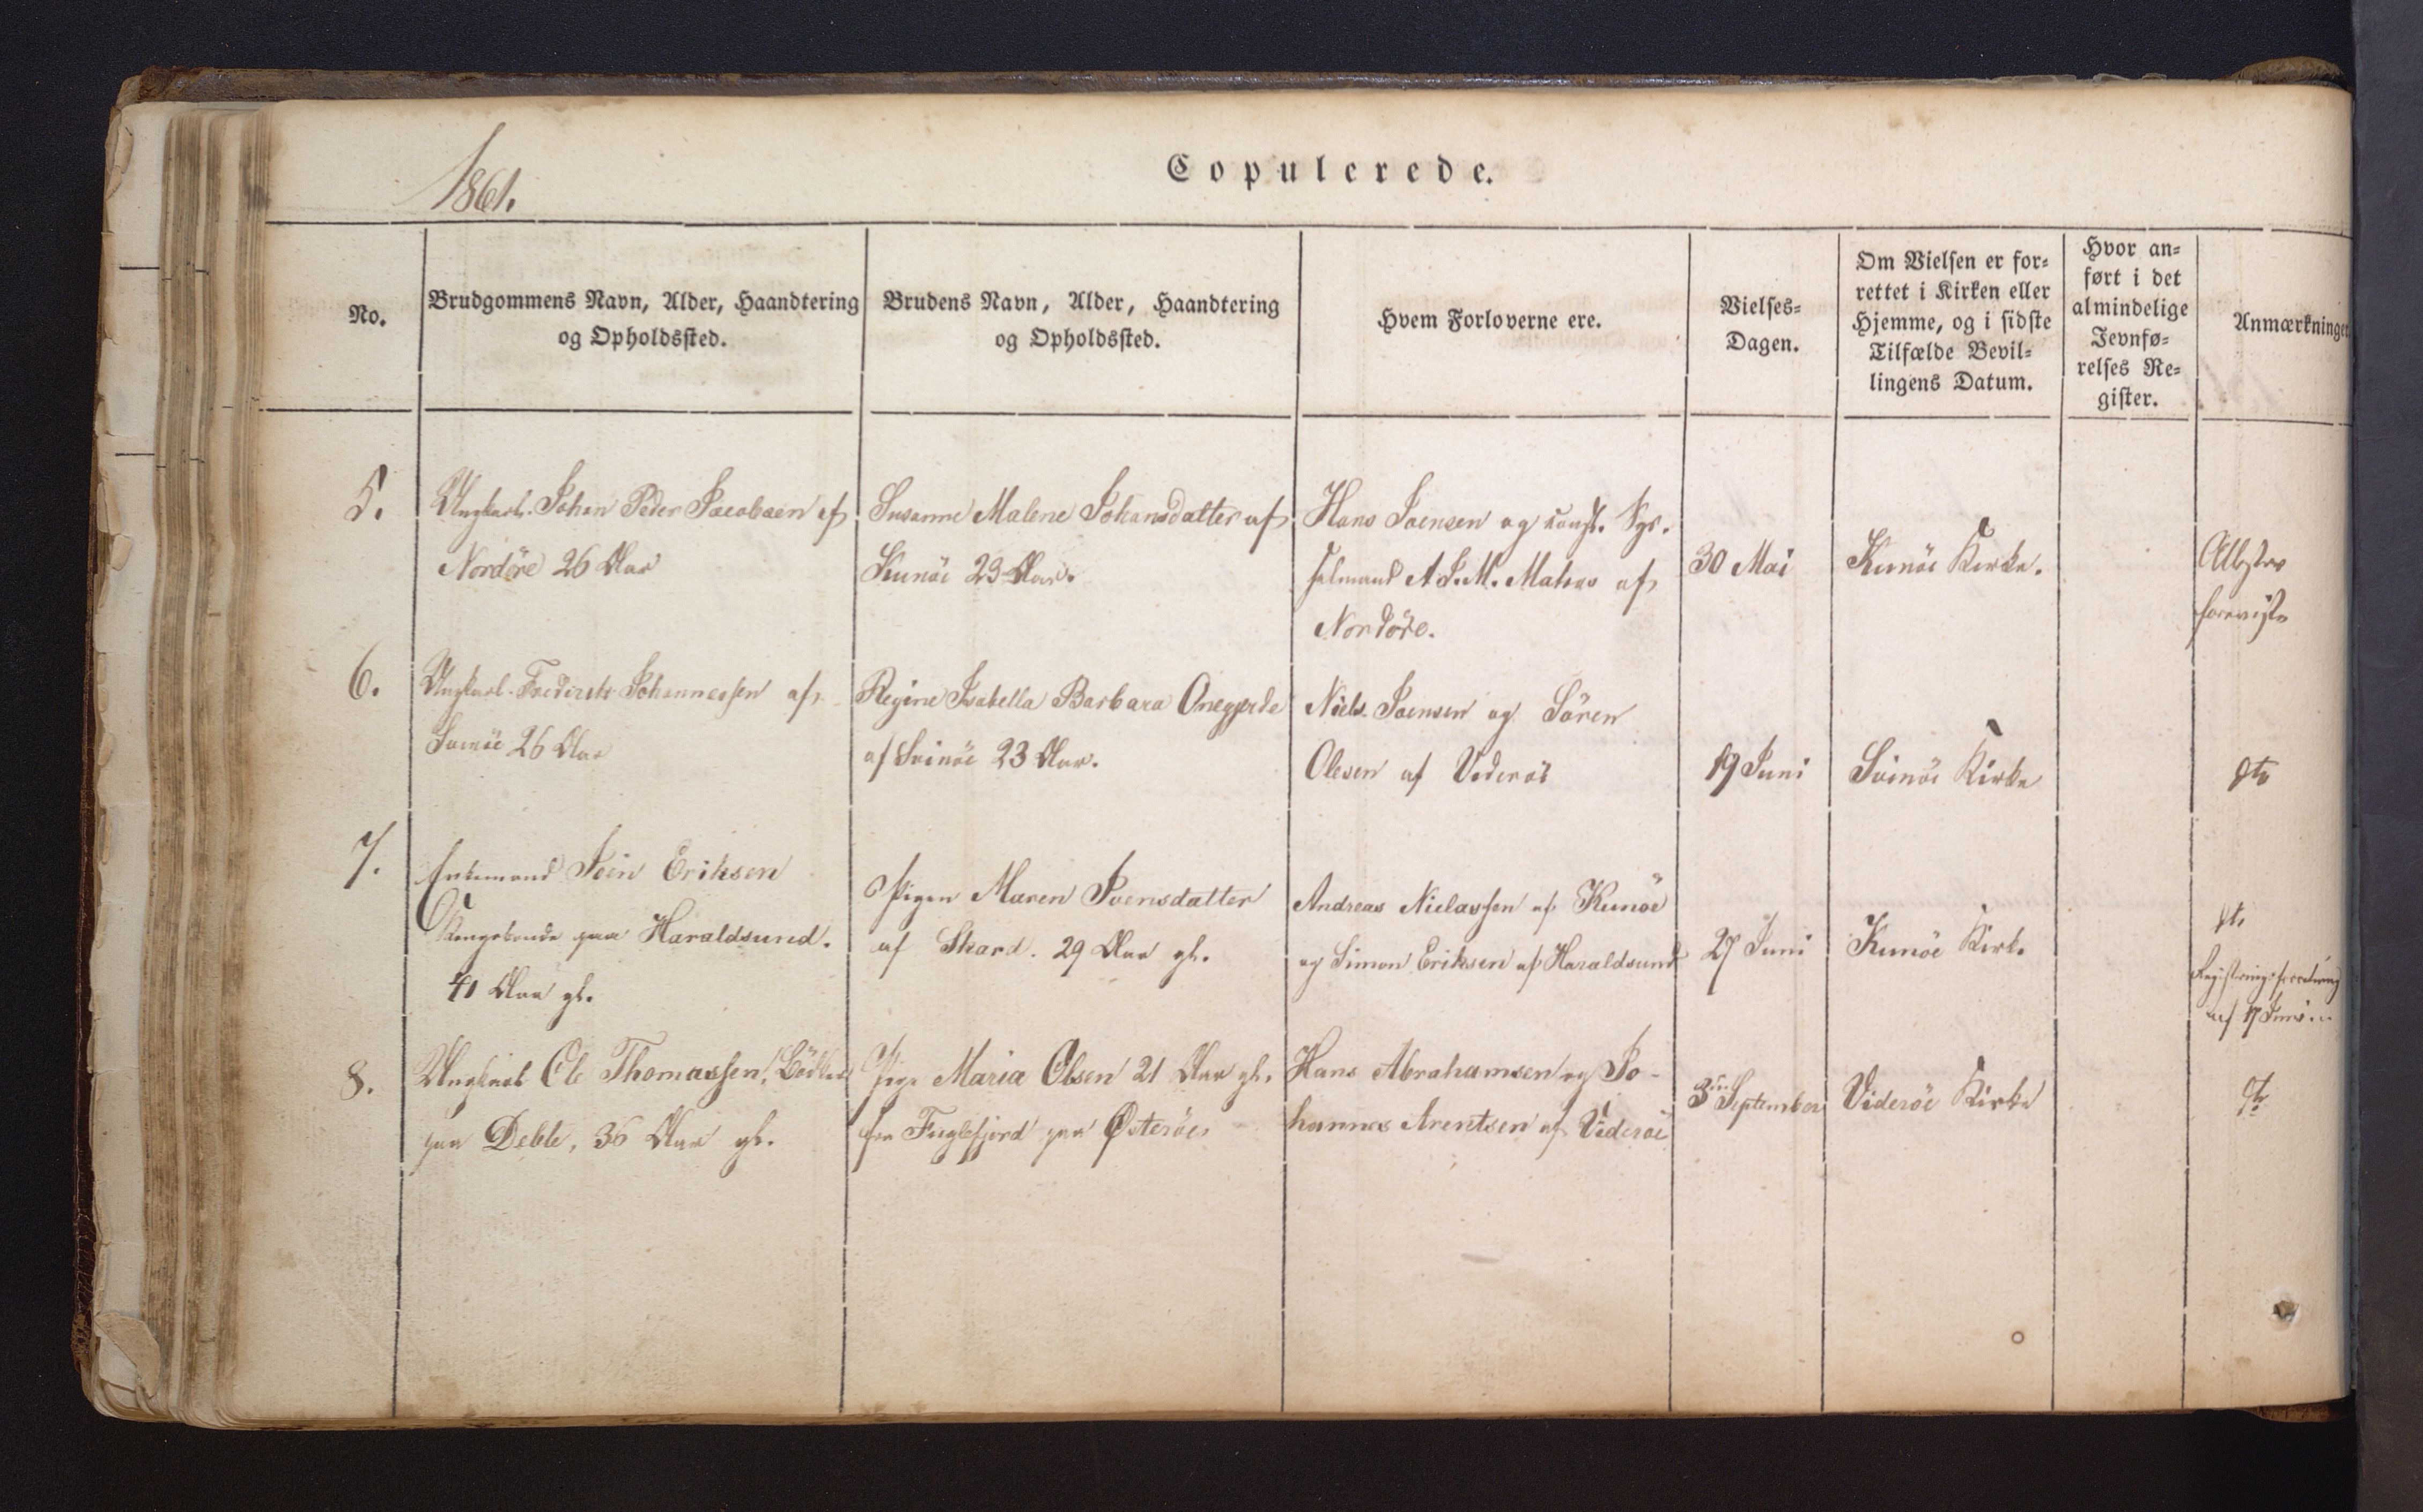 1861.
Copulerede.
No.
Brudgommens Navn, Alder, Haandtering
og Opholdssted.
Brudens Navn, Alder, Haandtering
og Opholdssted.
Hvem Forloverne ere.
Vielses-
Dagen.
Om Vielsen er for-
rettet i Kirken eller
Hjemme, og i sidste
Tilfælde Bevil-
lingens Datum.
Hvor an-
ført i det
almindelige
Jevnfø-
relses Re-
gister.
Anmærkninger
5.
Ungkarl Johan Peder Jacobsen af
Nordöre 26 Aar
Susanne Malene Johansdatter af
Kunöe 23 Aar.
Hans Joensen og const. Sys-
selmand A S. M. Matras af
Nordöre.
30 Mai
Kunöe Kirke.
Attester
foreviste
6.
Ungkarl Frederik Johannessen af
Svinöe 26 Aar
Regine Isabella Barbara Onegjerde
af Svinöe 23 Aar.
Niels Joensen og Sören
Olesen af Videröe
19 Juni
Svinöe Kirke
dto
7.
Enkemand Joen Eriksen
Kongsbonde paa Haraldsund.
41 Aar gl.
Pigen Maren Joensdatter
af Skard. 29 Aar gl.
Andreas Nielassen af Kunöe
og Simon Eriksen af Haraldsund
27 Juni
Kunöe Kirke
dto
af 17 Juni
8.
Ungkarl Ole Thomassen,
paa Deble, 36 Aar gl.
Pige Maria Olsen 21 Aar gl.
fra Fuglefjord paa Østeröe.
Hans Abrahamsen og Jo-
hannes Arentsen af Videröe
3die September
Videröe Kirke
dto